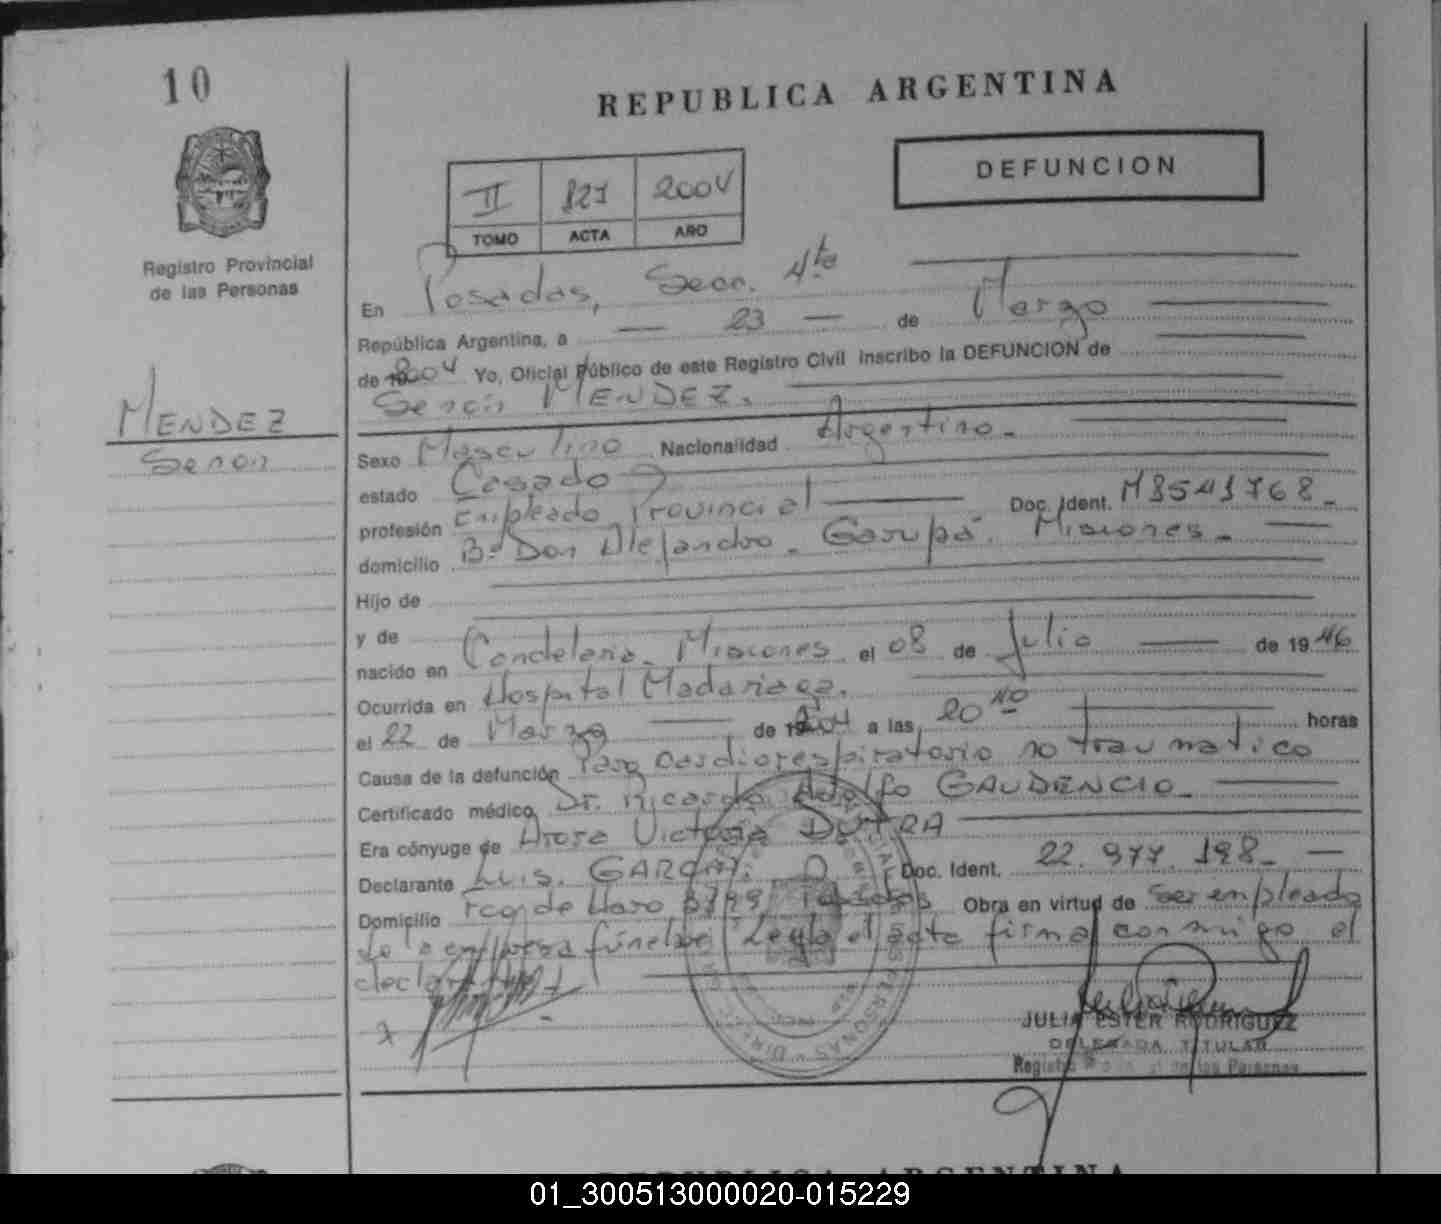 10
REPUBLICA ARGENTINA
DEFUNCION
II 821 2004
TOMO ACTA AÑO
Registro Provincial
de las Personas
En Posadas, Secc. 4ta
República Argentina, a 23 de Marzo
de 2004 Yo, Oficial Público de este Registro Civil inscribo la DEFUNCION de
Senon MENDEZ.
MENDEZ
Senon
Sexo Masculino Nacionalidad Argentino.-
estado Casado
profesión Empleado Provincial Doc. Ident. M8541768-
domicilio B° Don Alejandro. Garupá. Misiones.-
Hijo de
y de
nacido en Candelaria. Misiones el 08 de Julio de 1946
Ocurrida en Hospital Madariaga.
el 22 de Marzo de 2004 a las 20 horas
Causa de la defunción Paro Cardiorespiratorio no traumatico
Certificado médico Dr. Ricardo Adolfo GAUDENCIO-
Era cónyuge de Victoria DUTRA
Declarante Luis. Doc. Ident. 22.977.198-
Domicilio de Haro Posadas Obra en virtud de ser empleado
de la empresa fúnebre Leyda el acta firma conmigo el
declarante
JULIA ESTER RODRIGUEZ
DELEGADA TITULAR
Registro de las Personas
REPUBLICA ARGENTINA
01_300513000020-015229